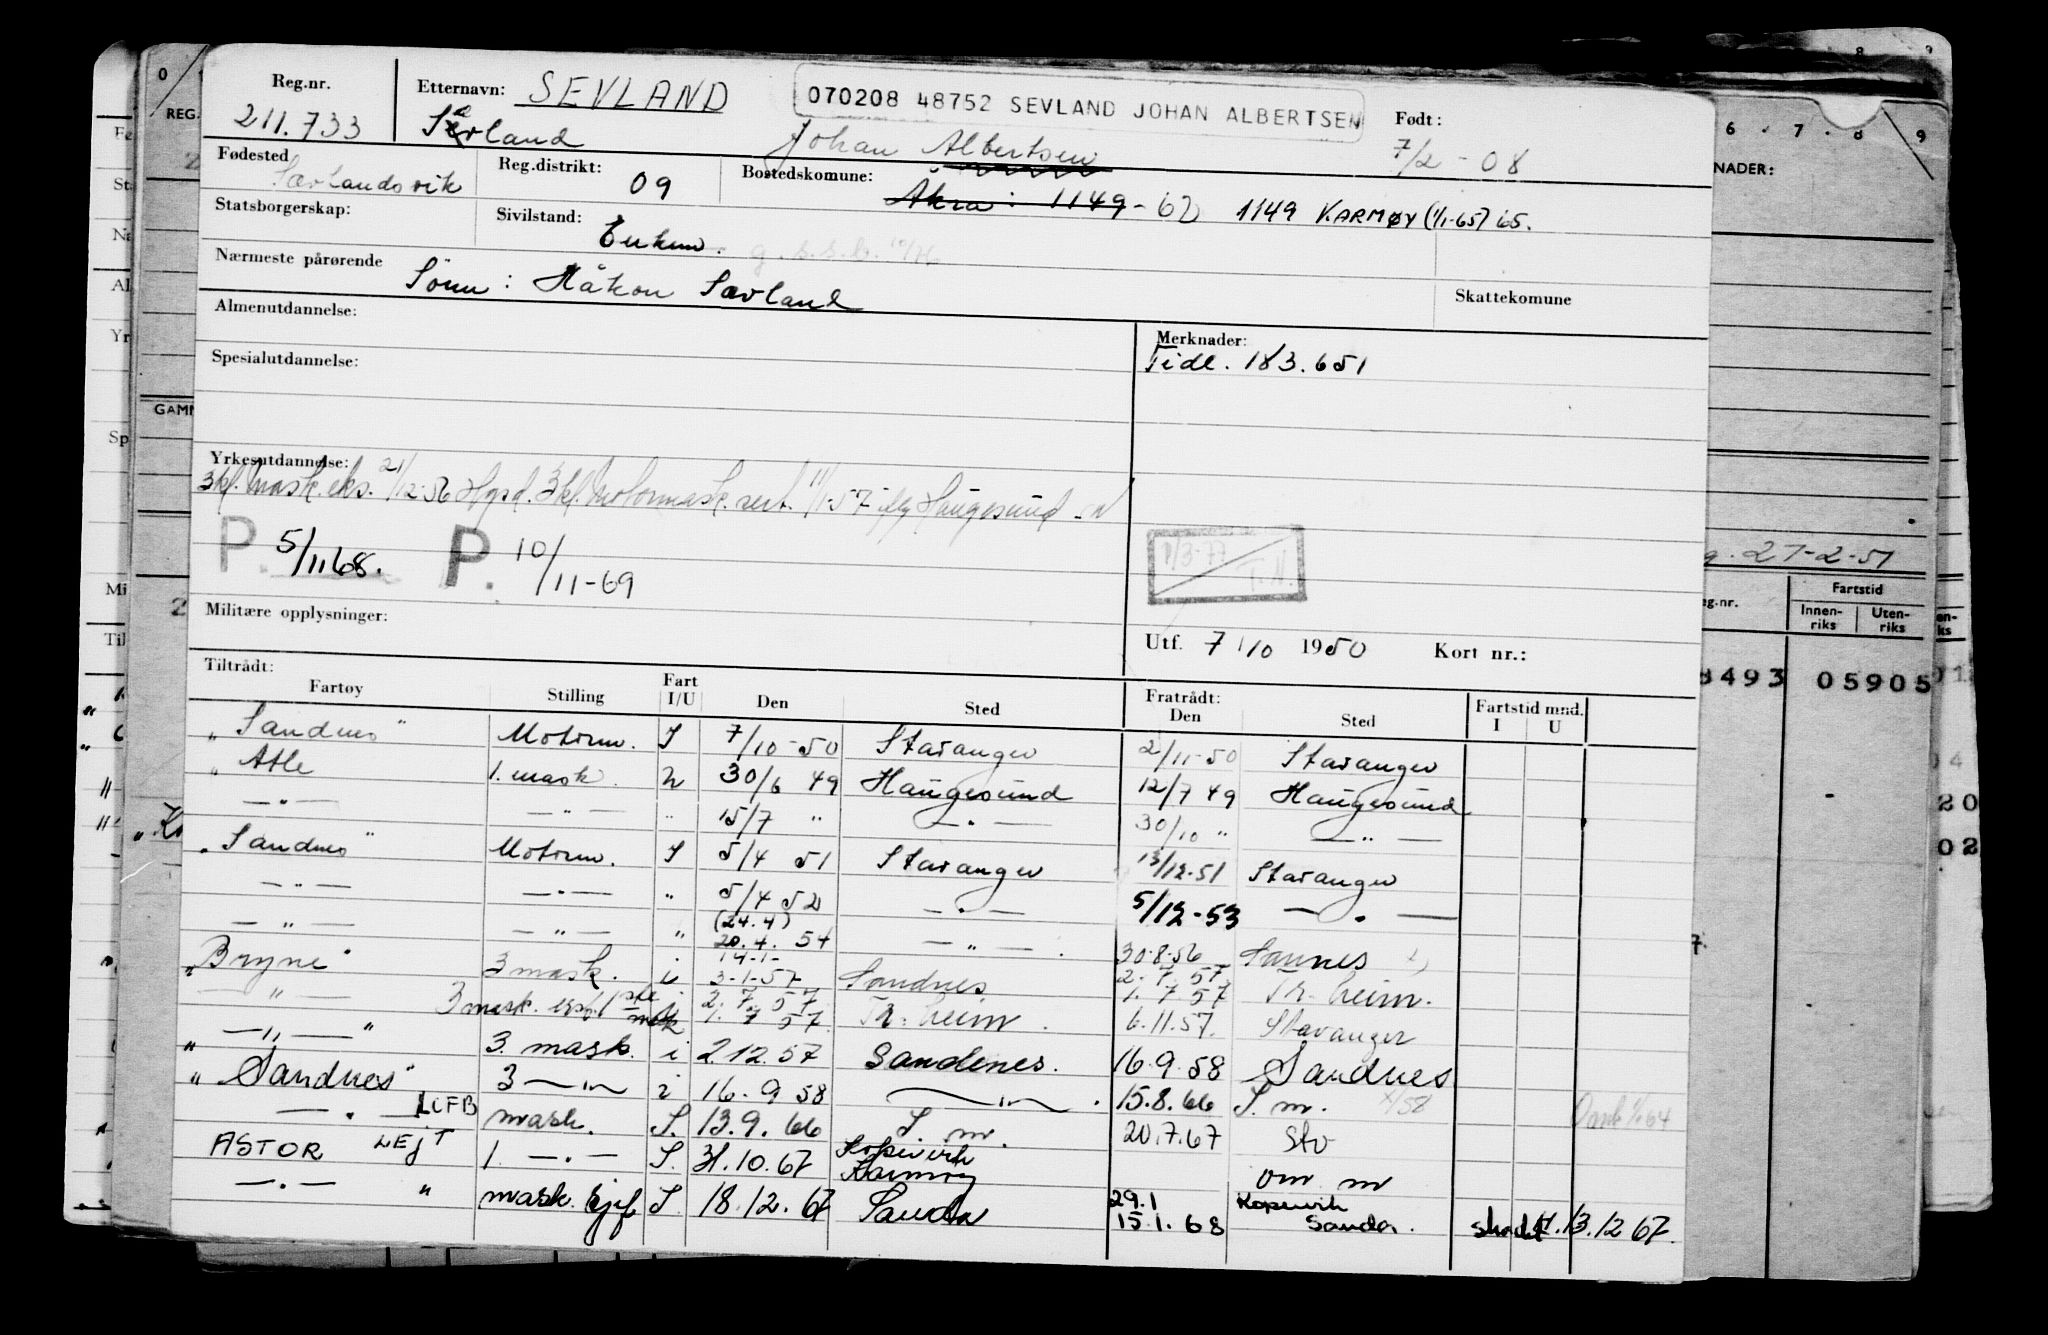 Reg.nr. 211.733
Etternavn: SEVLAND
070208 48752 SEVLAND JOHAN ALBERTSEN
Født: 7/2-08
Johan Albertsen
Fødested Sævlandsvik
Reg.distrikt: 09
Bostedskomune: Åkra: 1149-62 1149 KARMØY (1/1-65) 65.
Statsborgerskap:
Sivilstand: Enkem.
Nærmeste pårørende Sönn: Håkon Sævland
Skattekomune
Almenutdannelse:
Merknader:
Tidl. 183.651
Spesialutdannelse:
Yrkesutdannelse:
3kl. Mask.eks. 21/12-56 Hgsd. 3kl. Motormask.sert. 11/1-57 Haugesund
P. 5/11 68. P. 10/11-69
1/3-77 T.N.
Militære opplysninger:
Utf. 7/10 1950 Kort nr.:
Tiltrådt: Fratrådt:
Fartøy Stilling Fart I/U Den Sted Den Sted Fartstid mnd. I U
"Sandnes" Motorm. I 7/10-50 Stavanger 2/11-50 Stavanger
" Atle 1. mask. U 30/6 49 Haugesund 12/7 49 Haugesund
— " — — " — " 15/7 " — " — 30/10 " — " —
"Sandnes" Motorm. I 5/4 51 Stavanger 13/12-51 Stavanger
— " — — " — " 5/4 52 — " — 5/12-53 — " —
— " — — " — " (24.4) 20.4. 54 — " — 30.8.56 Sannes
"Bryne" 3 mask. i 14-1- 3-1-57 Sandnes 2.7.57 1.7.57 Tr.heim.
— " — 3 mask. 2.7.57 1.7.57 Tr.heim. 6.11.57. Stavanger
" — " — " 3. mask. i 2.12.57 Sandenes. 16.9.58 Sandnes
"Sandnes" 3 — " — i 16.9 58 — " — . 15.8.66 S.m. 58
— " — LCFB mask. I. 13.9.66 S.m. 20.7.67 Stv
ASTOR LEJT 1. — " — I. 31.10.67 Kopervik Karmøy om m
— " — " mask. sjef I. 18.12.67 Sauda 29.1 15.1.68 Kopervik Sauda. 13.12 67.
0
REG.
GAMM
6 7 8 9
NADER:
27-2-51
eg.nr. Fartstid
Innen-riks Uten-riks
8493 05905
20
02